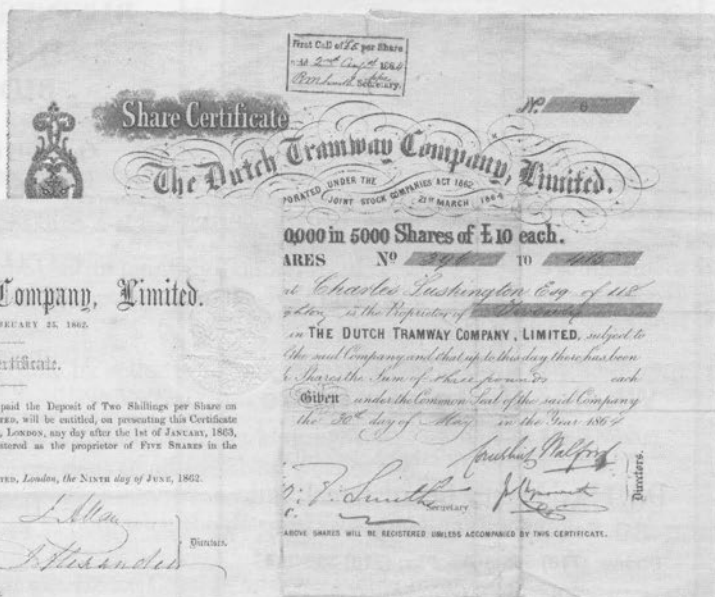 First Call of £5 per Share
2nd Augst 1864
Secretary.
No. 6
Share Certificate
The Dutch Tramway Company, Limited.
PORATED UNDER THE JOINT STOCK COMPANIES ACT 1862 21st MARCH 1864
0,000 in 5000 Shares of £10 each.
ARES No 396 TO 415
Charles Lushington Esq of 118
ghton is the Proprietor of Twenty
in THE DUTCH TRAMWAY COMPANY, LIMITED, subject to
the said Company and that up to this day there has been
Shares the Sum of three pounds each
Given under the Common Seal of the said Company
the 30th day of May in the Year 1864
Cornelius Walford
Smith
Secretary
Directors.
ABOVE SHARES WILL BE REGISTERED UNLESS ACCOMPANIED BY THIS CERTIFICATE.
Company, Limited.
RUARY 25, 1862.
ertificate.
paid the Deposit of Two Shillings per Share on
TED, will be entitled, on presenting this Certificate
, LONDON, any day after the 1st of JANUARY, 1863,
istered as the proprietor of FIVE SHARES in the
TED, London, the NINTH day of JUNE, 1862.
J. Allan
Alexander
Directors.